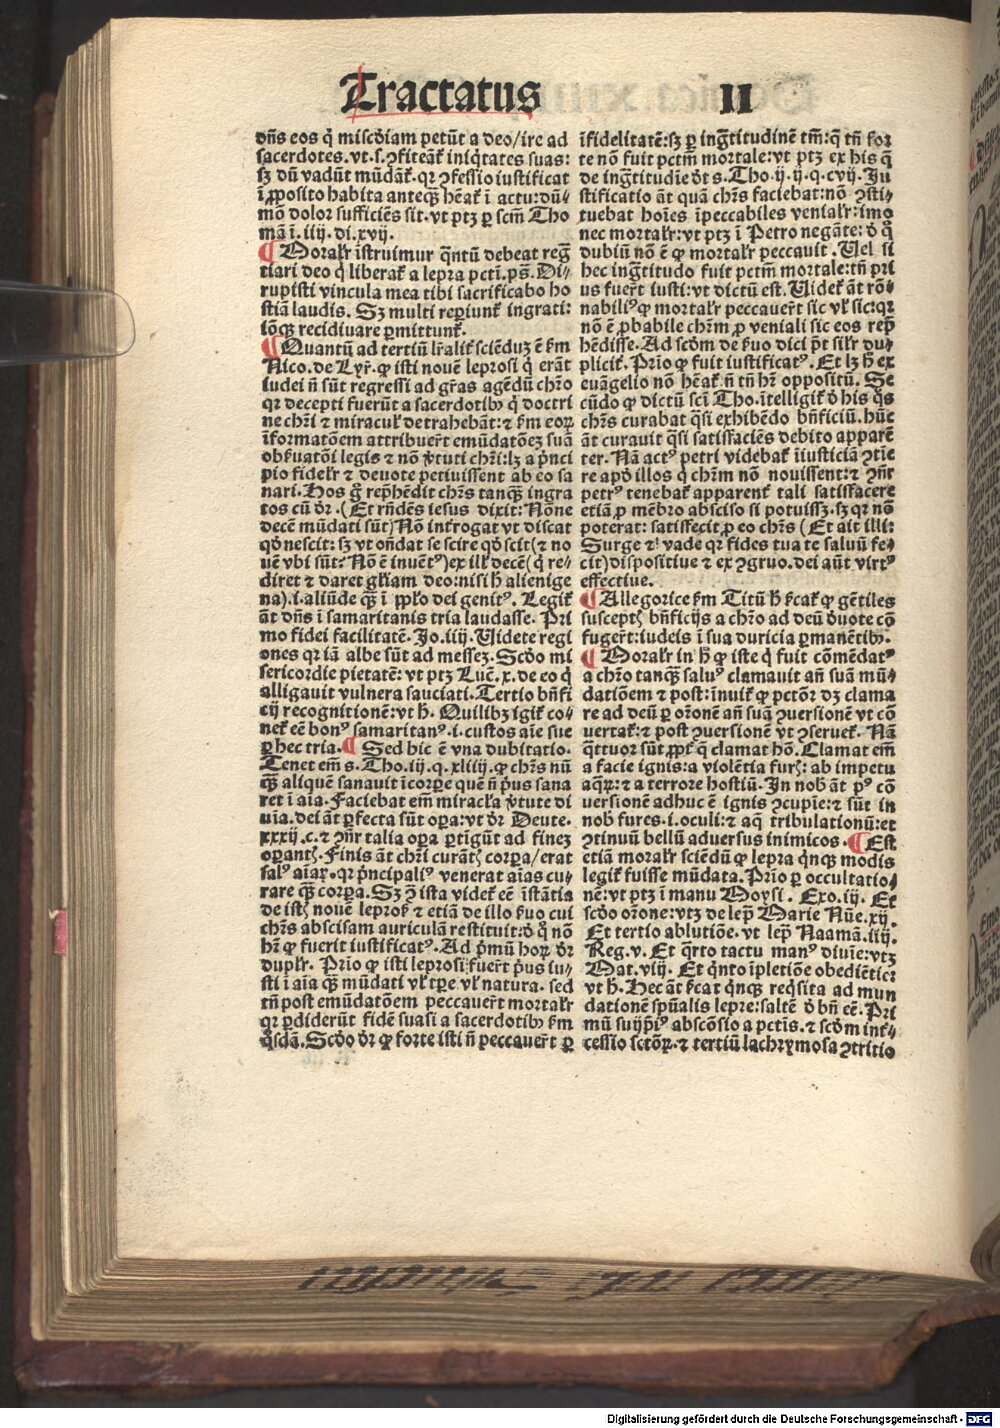 Tractatus II
dn̄s eos q̇ mīscōiam petūt a deo/ire ad
sacerdotes.vt.s.ꝯfiteāt̄ iniq̇tates suas:
sꝫ dū vadūt mūdāt̄.qꝛ ꝯfessio iustificat
ī ꝓposito habita anteqꝫ̄ hēat̄ ī actu:dū⸗
mō dolor sufficiēs sit.vt ptꝫ ꝑ scm̄ Tho
mā ī.iiij.di.xvij.
¶ Moralr̄ īstruimur qn̄tū debeat reḡ⸗
tiari deo q̇ liberat̄ a lepra pctī.ps̄.Di⸗
rupisti vincula mea tibi sacrificabo ho
stiā laudis. Sꝫ multi reꝑiunt̄ ingrati:
iōqꝫ recidiuare ꝑmittunt̄.
¶ Quantū ad tertiū lr̄alit̄ sciēduꝫ ē ẜm
Nico.de Lyr̄.ꝙ isti nouē leprosi q̇ erāt
iudei n̄ sūt regressi ad gr̄as agēdū chr̄o
qꝛ decepti fuerūt a sacerdotibꝰ q̇ doctri
ne chr̄i ⁊ miracul̄ detrahebāt:⁊ ẜm eoꝝ
īformatōem attribuer̄t emūdatōeꝫ suā
obẜuatōi legis ⁊ nō v̇tuti chr̄i:lꝫ a p̄nci
pio fidelr̄ ⁊ deuote petiuissent ab eo sa
nari.Hos g̊ rep̄hēdit chr̄s tanqꝫ̄ ingra
tos cū dr̄.(Et rn̄dēs iesus dixit:Nōne
decē mūdati sūt)Nō int̄rogat vt discat
qd̊ nescit:sꝫ vt on̄dat se scire qd̊ scit(⁊ no
uē vbi sūt:Nō ē inuētꝰ)ex ill̄ decē(q̇ re⸗
diret ⁊ daret gl̄iam deo:nisi h̄ alienige
na).i.aliūde qꝫ̄ ī pp̄lo dei genitꝰ. Legit̄
āt dn̄s ī samaritanis tria laudasse. Pri
mo fidei facilitatē. Jo.iiij. Videte regi
ones qꝛ iā albe sūt ad messeꝫ. Scd̊o mi
sericordie pietatē: vt ptꝫ Luc̄.x.de eo q̇
alligauit vulnera sauciati.Tertio bn̄fi
cij recognitionē:vt h̄. Quilibꝫ igit̄ co⸗
net̄ eē bonꝰ samaritanꝰ.i.custos aīe sue
ꝑ hec tria.¶ Sed hic ē vna dubitatio.
Tenet em̄ s. Tho.iij.q.xliiij.ꝙ chr̄s nū
qꝫ̄ aliquē sanauit ī corꝑe quē n̄ p̄us sana
ret ī aīa.Faciebat em̄ mirac̄la v̇tute di
uīa.dei āt ꝑfecta sūt oꝑa:vt dr̄ Deute.
xxxij.c.⁊ ꝯn̄r talia oꝑa ꝑtīgūt ad fineꝫ
oꝑantꝭ.Finis āt chr̄i curātꝭ corꝑa/erat
salꝰ aīaꝝ.qꝛ p̄ncipaliꝰ venerat aīas cu⸗
rare qꝫ̄ corꝑa. Sꝫ ꝯ̄ ista videt̄ eē īstātia
de istꝭ nouē leprosꝭ ⁊ etiā de illo ẜuo cui
chr̄s abscisam auriculā restituit:d̊ q̊ nō
hr̄ ꝙ fuerit iustificatꝰ. Ad p̄mū hoꝝ dr̄
duplr̄. Prīo ꝙ isti leprosi fuer̄t p̄us iu⸗
sti ī aīa qꝫ̄ mūdati vl̄ tꝑe vl̄ natura. sed
tn̄ post emūdatōem peccauer̄t mortalr̄
qꝛ ꝑdiderūt fidē suasi a sacerdotibꝰ ẜm
q̇sdā.Scd̊o dr̄ ꝙ forte isti n̄ peccauer̄t ꝑ
īfidelitatē:sꝫ ꝑ ing̊titudinē tm̄:q̄ tn̄ for
te nō fuit pctm̄ mortale:vt ptꝫ ex his q̄
de ing̊titudīe dr̄t s.Tho.ij.ij.q.cvij. Ju
stificatio āt quā chr̄s faciebat:nō ꝯsti⸗
tuebat hoīes īpeccabiles venialr̄:imo
nec mortalr̄:vt ptꝫ ī Petro negāte: d̊ q̊
dubiū nō ē ꝙ mortalr̄ peccauit . Vel si
hec ing̊titudo fuit pctm̄ mortale:tn̄ pri
us fuer̄t iusti:vt dictū est. Videt̄ āt rō⸗
nabiliꝰ ꝙ mortalr̄ peccauer̄t sic vl̄ sic:qꝛ
nō ē ꝓbabile chr̄m ꝓ veniali sic eos rep̄
hēdisse. Ad scd̊m de ẜuo dici pt̄ silr̄ du⸗
plicit̄. Prīo ꝙ fuit iustificatꝰ. Et lꝫ h̄ ex
euāgelio nō hēat̄ n̄ tn̄ hr̄ oppositū. Se
cūdo ꝙ dictū scī Tho.ītelligit̄ d̊ his q̊s
chr̄s curabat q̄si exhibēdo bn̄ficiū.hūc
āt curauit q̄si satisfaciēs debito apparē
ter. Nā actꝰ petri videbat̄ īiusticiā ꝯtīe
re apd̊ illos q̇ chr̄m nō nouissent:⁊ ꝯn̄r
petrꝰ tenebat̄ apparent̄ tali satisfacere
etiā ꝓ mēbro absciso si potuissꝫ.sꝫ qꝛ nō
poterat: satisfecit ꝓ eo chr̄s (Et ait illi:
Surge ⁊ vade qꝛ fides tua te saluū fe⸗
cit)dispositiue ⁊ ex ꝯgruo.dei aūt virtꝰ
effectiue.
¶ Allegorice ẜm Titū h̄ ẜcat̄ ꝙ gētiles
susceptꝭ bn̄ficijs a chr̄o ad deū d̊uote cō
fuger̄t:iudeis ī sua duricia ꝑmanētibꝰ.
¶ Moralr̄ in h̄ ꝙ iste q̇ fuit cōmēdatꝰ
a chr̄o tanqꝫ saluꝰ clamauit an̄ suā mū⸗
datiōem ⁊ post:inuit̄ ꝙ pctōr dꝫ clama
re ad deū ꝑ or̄onē an̄ suā ꝯuersionē vt cō
uertat̄:⁊ post ꝯuersionē vt ꝯseruet̄. Nā
q̄ttuor sūt ꝓpt̄ q̄ clamat hō. Clamat em̄
a facie ignis:a violētia furꝭ: ab impetu
aqꝝ:⁊ a terrore hostiū. In nob̄ āt pꝰ cō
uersionē adhuc ē ignis ꝯcupīe:⁊ sūt in
nob̄ fures.i.oculi:⁊ aq̄ tribulationū:et
ꝯtinuū bellū aduersus inimicos.¶ Est
etiā moralr̄ sciēdū ꝙ lepra q̇nqꝫ modis
legit̄ fuisse mūdata. Prīo ꝑ occultatio⸗
nē:vt ptꝫ ī manu Moysi . Exo.iij. Et
scd̊o or̄one:vtꝫ de lep̄ Marie Nūe.xij.
Et tertio ablutiōe.vt lep̄ Naamā.iiij.
Reg.v. Et q̇rto tactu manꝰ diuīe:vtꝫ
Mat.viij. Et q̇nto īpletiōe obediētic:
vt h̄. Hec āt ẜcat q̇nqꝫ req̇sita ad mun
dationē spūalis lepre:saltē d̊ bn̄ eē. Pri
mū suijp̄iꝰ abscōsio a pctis.⁊ scd̊m int̄⸗
cessio sctōꝝ.⁊ tertiū lachrymosa ꝯtritio
Digitalisierung gefördert durch die Deutsche Forschungsgemeinschaft - DFG